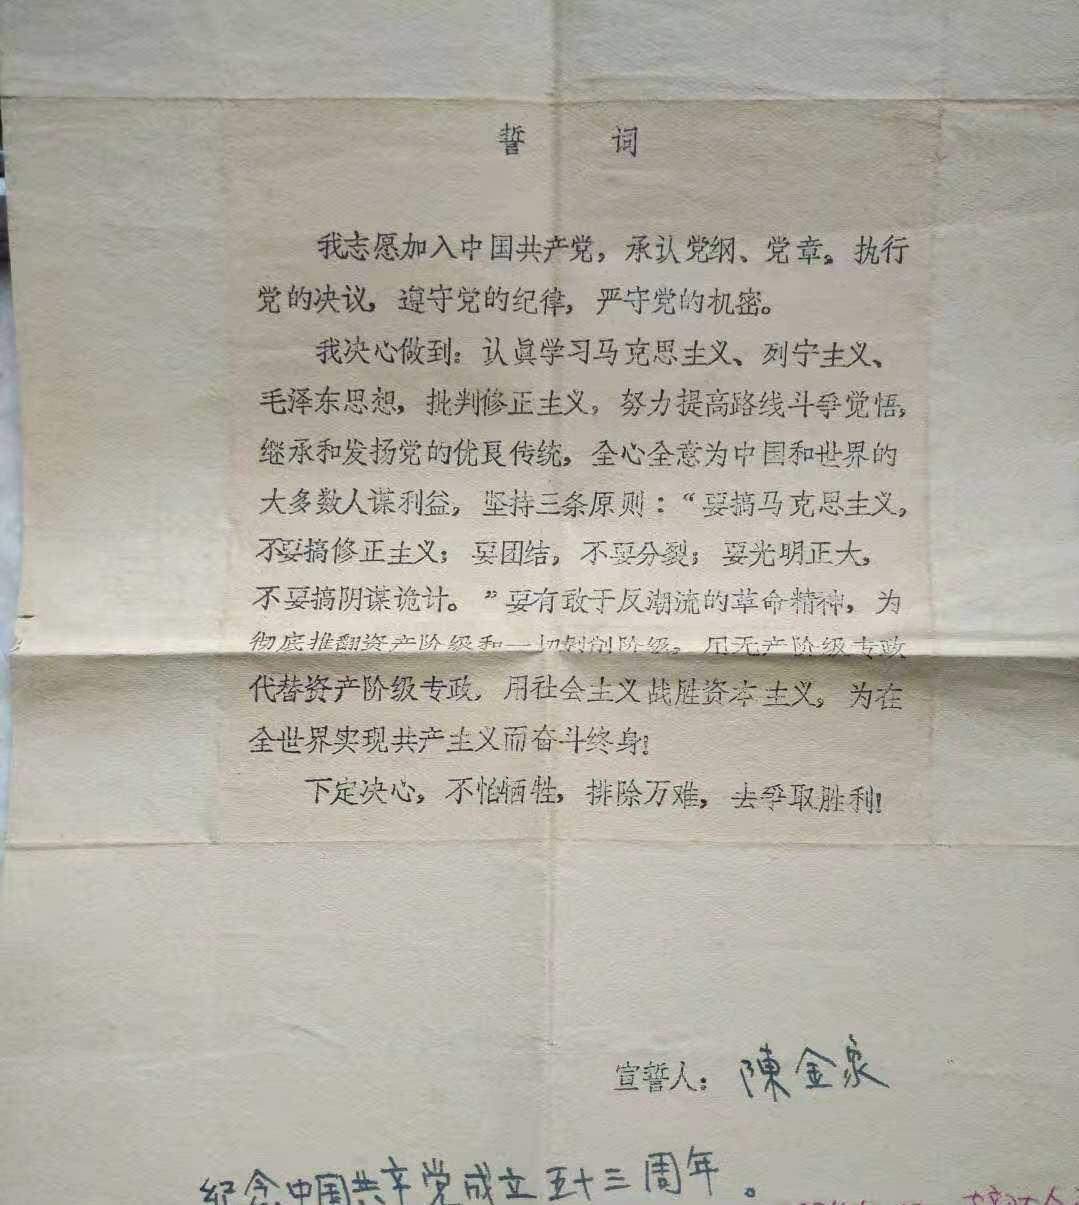 誓 词
我志愿加入中国共产党，承认党纲、党章。执行
党的决议，遵守党的纪律，严守党的机密。
我决心做到：认眞学习马克思主义、列宁主义、
毛泽东思想，批判修正主义，努力提高路线斗争觉悟，
继承和发扬党的优良传统，全心全意为中国和世界的
大多数人谋利益，坚持三条原则：“要搞马克思主义，
不要搞修正主义；要团结，不要分裂；要光明正大，
不要搞阴谋诡计。”要有敢于反潮流的革命精神，为
彻底推翻资产阶级和一切剥削阶级。用无产阶级专政
代替资产阶级专政，用社会主义战胜资本主义。为在
全世界实现共产主义而奋斗终身！
下定决心，不怕牺牲，排除万难，去争取胜利！
宣誓人：陳金泉
纪念中国共产党成立五十三周年。